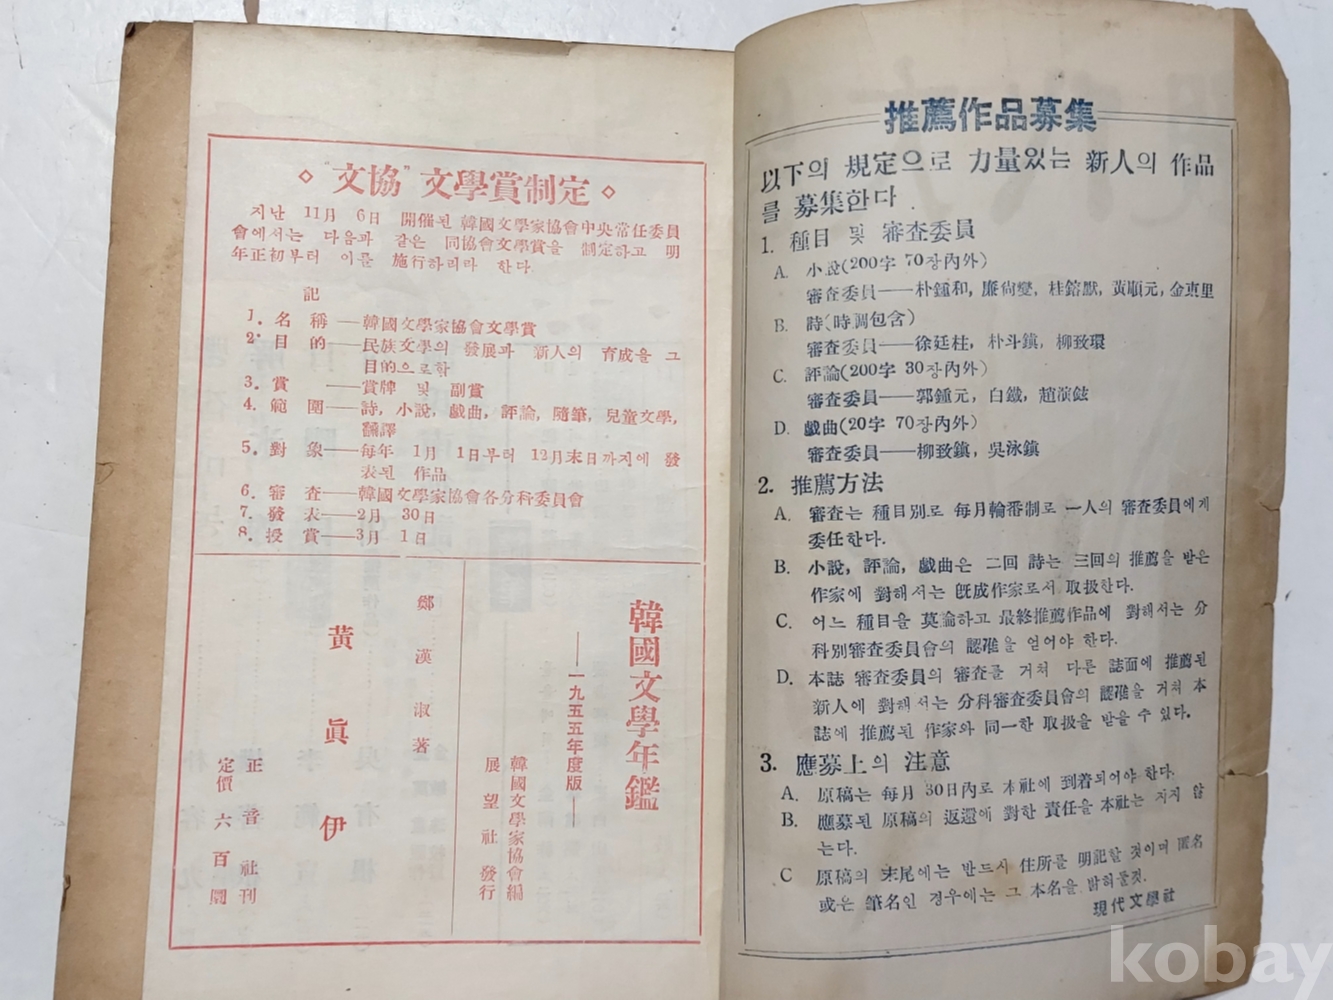 ◇ "文協" 文學賞制定 ◇
지난 11月 6日 開催된 韓國文學家協會中央常任委員
會에서는 다음과 같은 同協會文學賞을 制定하고 明
年正初부터 이를 施行하리라 한다.
記
1. 名稱——韓國文學家協會文學賞
2. 目的——民族文學의 發展과 新人의 育成을 그
目的으로함
3. 賞——賞牌 및 副賞
4. 範圍——詩, 小說, 戱曲, 評論, 隨筆, 兒童文學,
飜譯
5. 對象——每年 1月 1日부터 12月末日까지에 發
表된 作品
6. 審査——韓國文學家協會各分科委員會
7. 發表——2月 30日
8. 授賞——3月 1日
韓國文學年鑑
——一九五五年度版——
韓國文學家協會編
展望社 發行
鄭漢淑著
黃眞伊
正音社刊
定價六百圜
推薦作品募集
以下의 規定으로 力量있는 新人의 作品
를 募集한다.
1. 種目 및 審査委員
A. 小說(200字 70장內外)
審査委員——朴鍾和, 廉尙燮, 桂鎔默, 黃順元, 金東里
B. 詩(時調包含)
審査委員——徐廷柱, 朴斗鎭, 柳致環
C. 評論(200字 30장內外)
審査委員——郭鍾元, 白鐵, 趙演鉉
D. 戱曲(20字 70장內外)
審査委員——柳致鎭, 吳泳鎭
2. 推薦方法
A. 審査는 種目別로 每月輪番制로 一人의 審査委員에게
委任한다.
B. 小說, 評論, 戱曲은 二回 詩는 三回의 推薦을 받은
作家에 對해서는 旣成作家로서 取扱한다.
C. 어느 種目을 莫論하고 最終推薦作品에 對해서는 分
科別審査委員會의 認准을 얻어야 한다.
D. 本誌 審査委員의 審査를 거처 다른 誌面에 推薦된
新人에 對해서는 分科審査委員會의 認准을 거처 本
誌에 推薦된 作家와 同一한 取扱을 받을 수 있다.
3. 應募上의 注意
A. 原稿는 每月 30日內로 本社에 到着되어야 한다.
B. 應募된 原稿의 返還에 對한 責任을 本社는 지지 않
는다.
C 原稿의 末尾에는 반드시 住所를 明記할 것이며 匿名
或은 筆名인 경우에는 그 本名을 밝혀줄것.
現代文學社
kobay